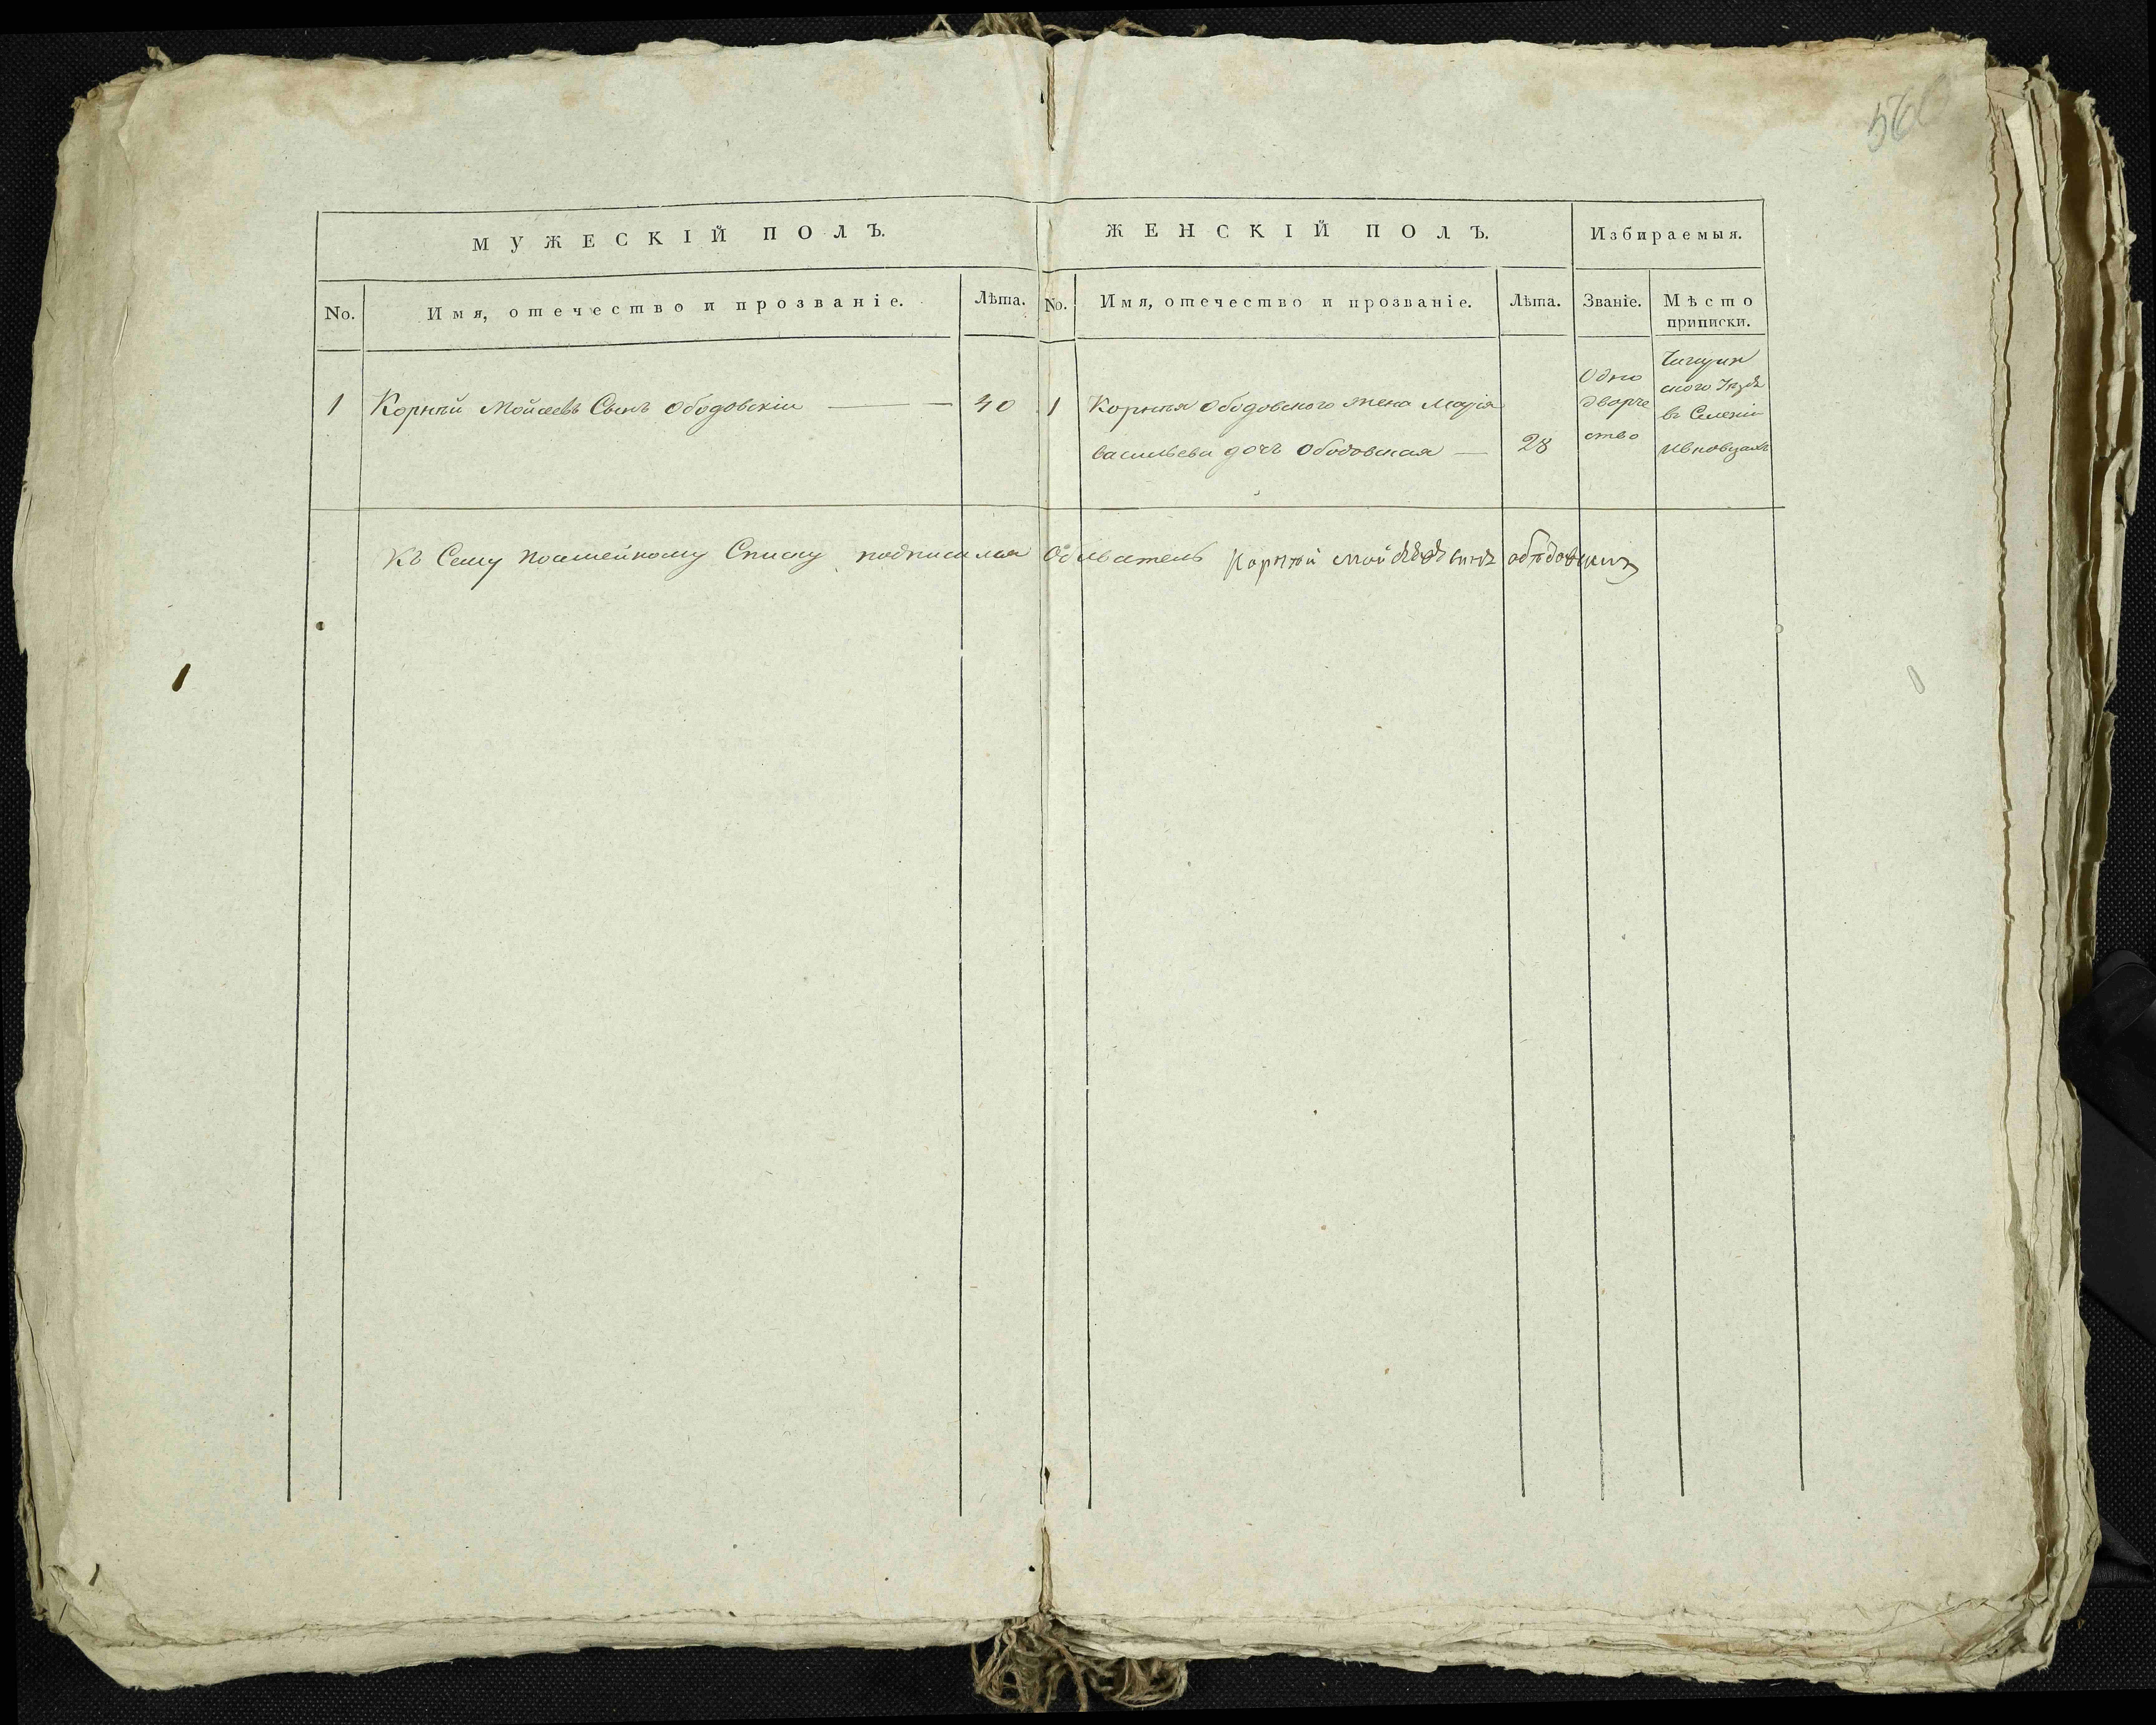 560
МУЖЕСКІЙ ПОЛЪ.
ЖЕНСКІЙ ПОЛЪ.
Избираемыя.
No.
Имя, отечество и прозваніе.
Лѣта.
No.
Имя, отечество и прозваніе.
Лѣта.
Званіе.
Мѣсто
приписки.
1
Корнѣй Мойсеевъ Сынъ Ободовскіи
40
1
Корнѣя Ободовского жена Марія
васильева дочъ Ободовская
28
Одно
дворче
ство
Чигирин
ского Уѣзда
въ Селеніи
Къ Сему посмейному Списку подписился Обыватель Корнѣй